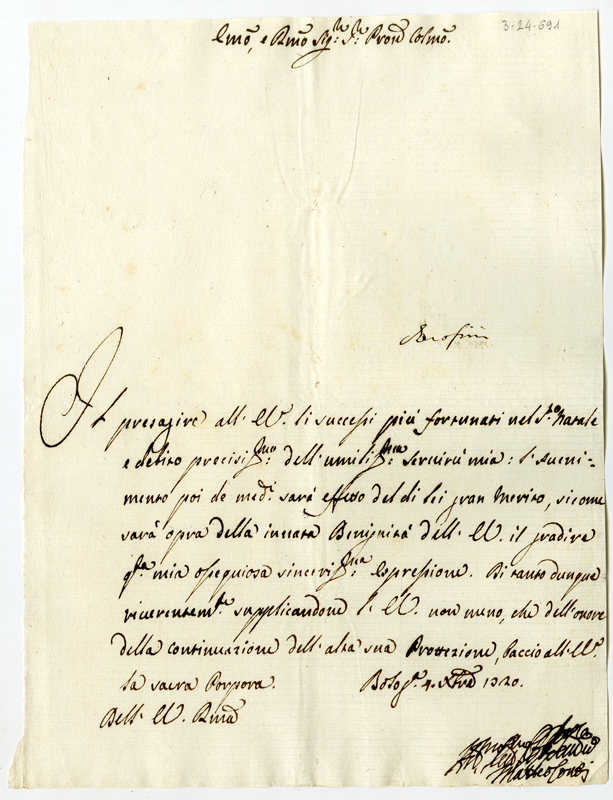 3-24-691
Emo, e Rmo Sig:r P:rn Prone Colmo.
Il presagire all' E.V. li successi più fortunati nel S.to Natale
e debito precisis:mo dell'umilis:ma servitù mia: l'aveni-
mento poi de med:i sarà effetto del di lei gran merito, sicome
sarà opra della innata Benignità dell' E.V. il gradire
q:ta mia ossequiosa sinceris:ma espressione. Di tanto dunque
riverentem:te supplicandone l' E.V. non meno, che dell'onore
della continuazione dell'alta sua Protezione, baccio all' E.V.
la sacra Porpora. Bolog:a 4. Xbre 1720.
Dell' E.V. Rma